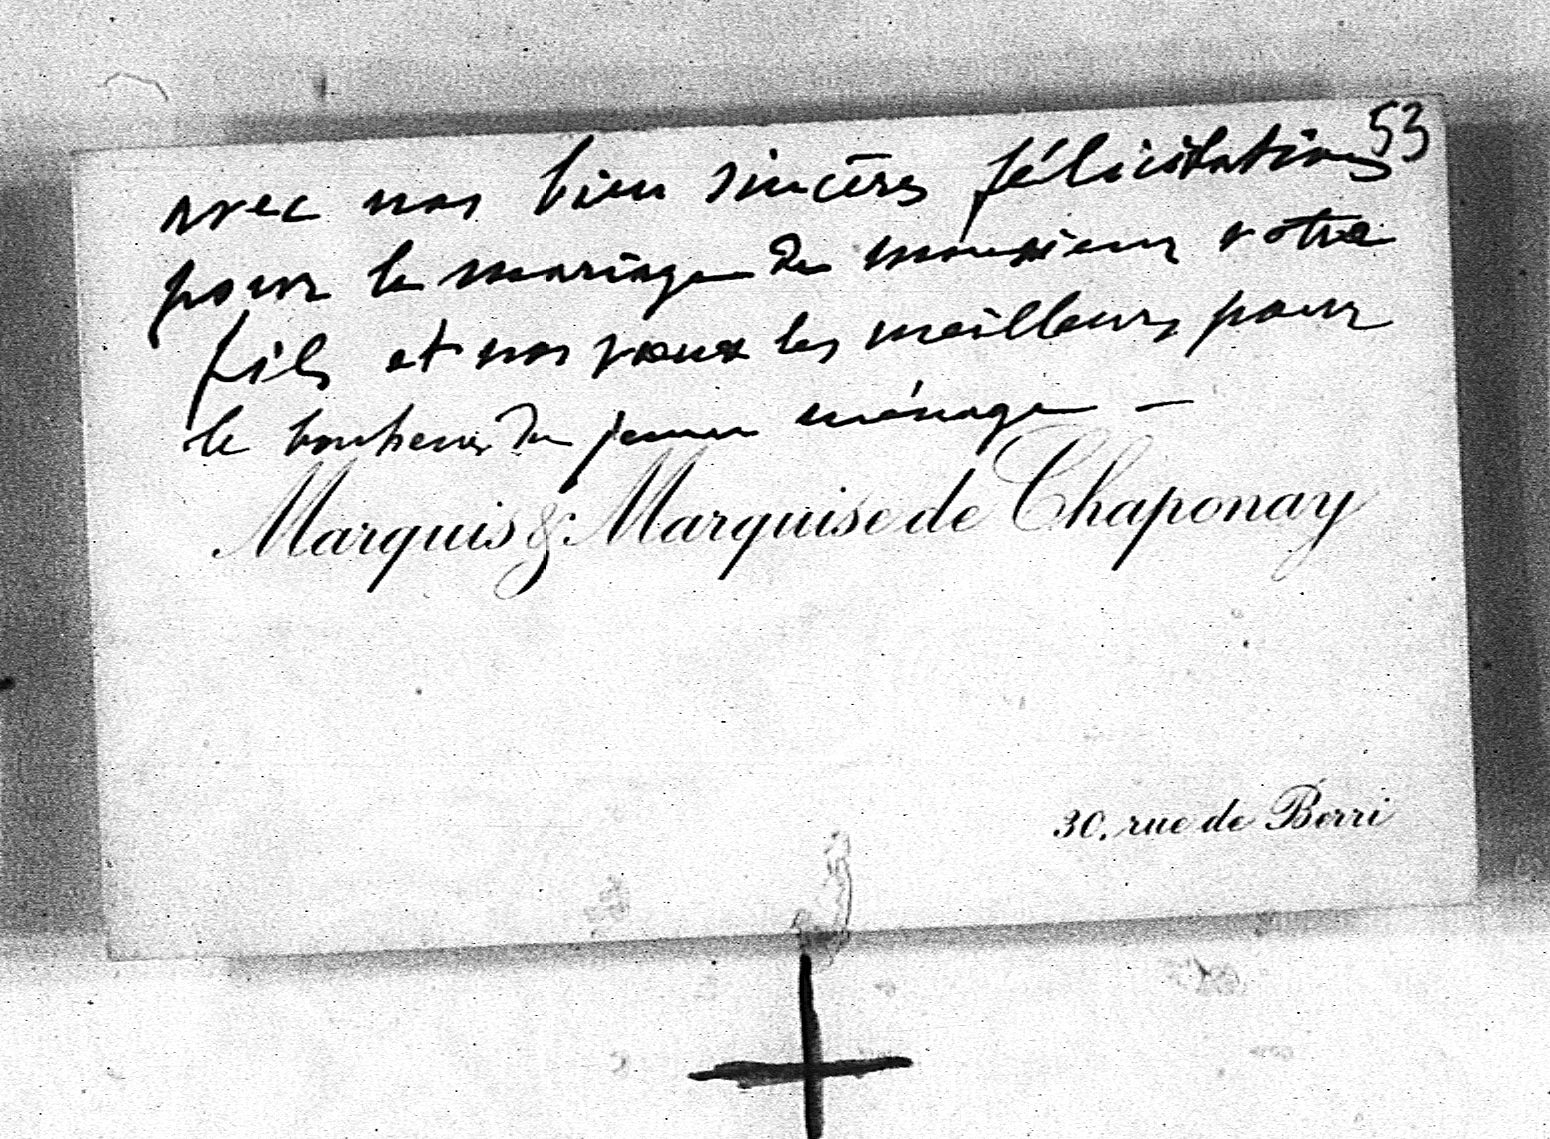 53
avec nos bien sincères félicitations
pour le mariage de monsieur votre
fils et nos vœux les meilleurs pour
le bonheur du jeune ménage —
Marquis & Marquise de Chaponay
30, rue de Berri